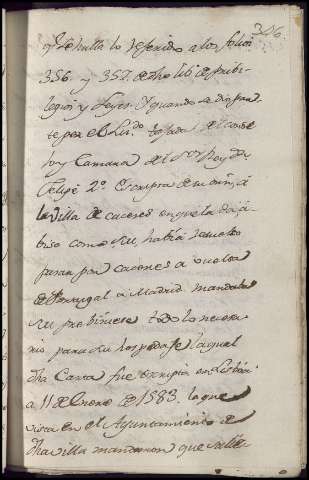 346
y se halla lo referido a los folios
356 y 357 de dho lib. de pribi-
legios y Leyes. Y quando se
te por el Liz.do Tejada del conse
jo y Camara del Sor Rey Dn
Felipe 2º
la Villa de caceres en que la da a
biso como su habia resuelto
pasar por caceres a vuelta
de Portugal a Madrid mandaba
se prebiniese todo lo necesa
rio para su hospedaje, la qual
dha Carta fue escripta en Lisboa
a 11 de Enero de 1583, la que
vista en el Ayuntamiento de
dha villa mandaron que